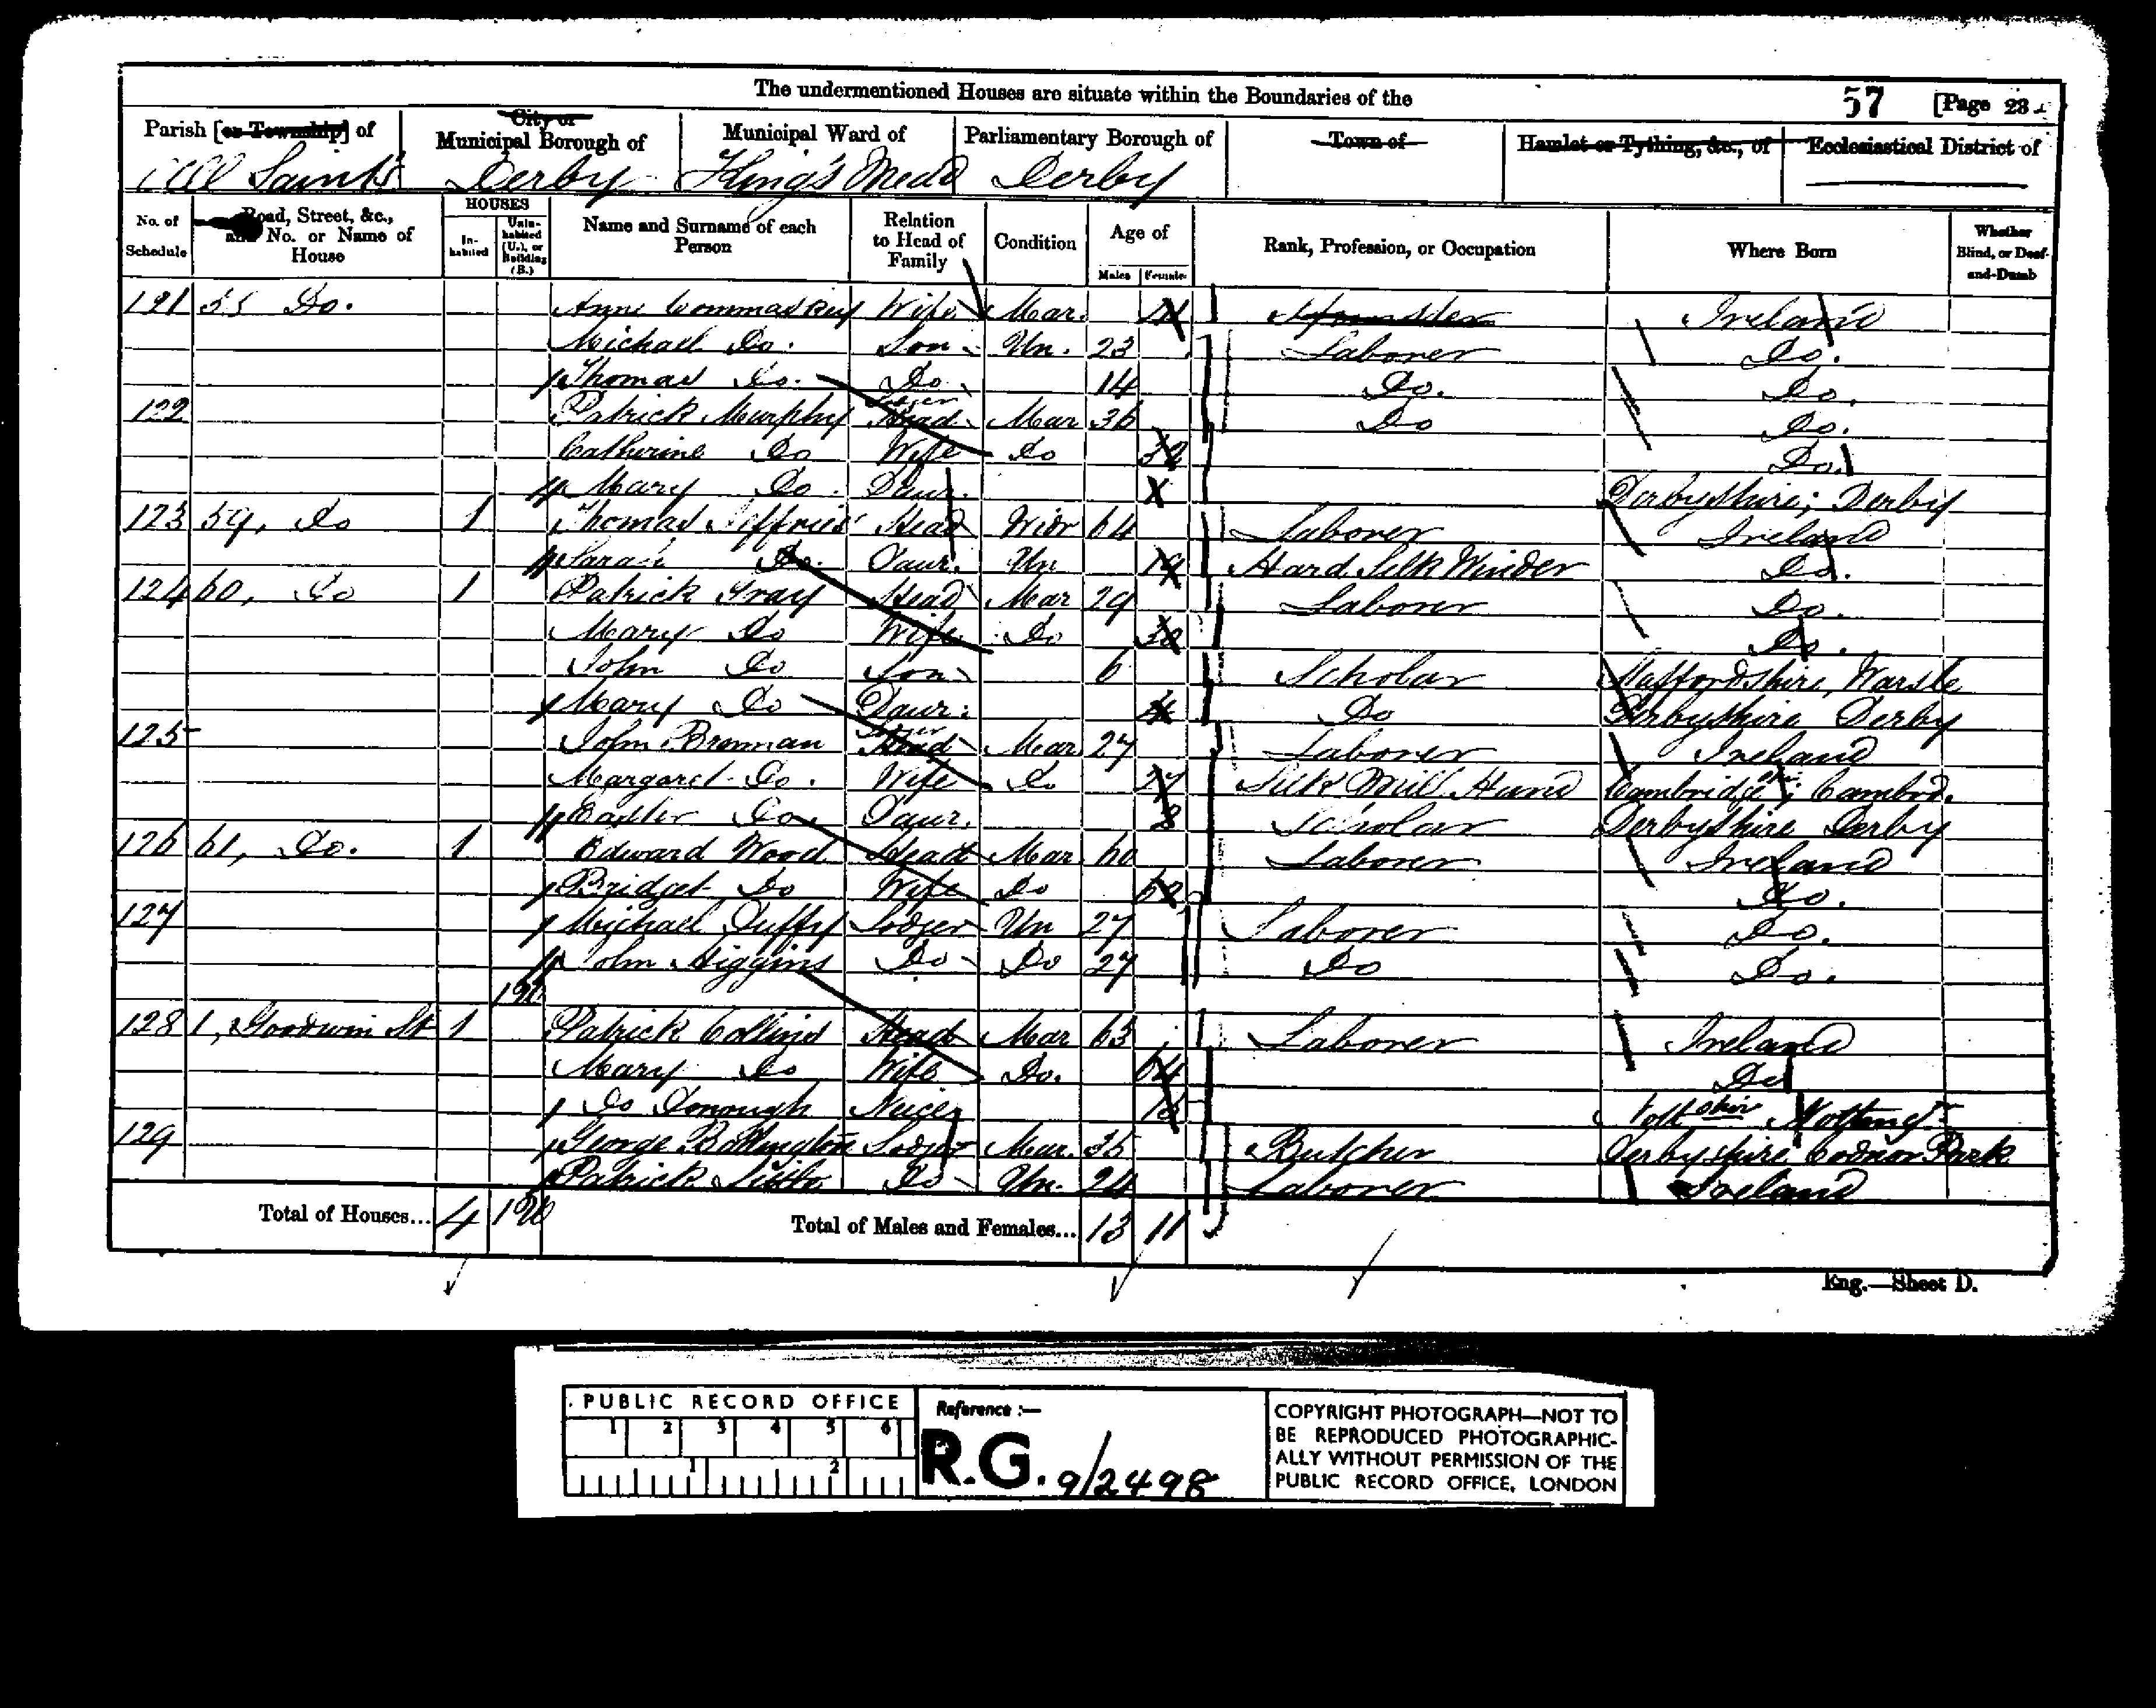 The undermentioned Houses are situate within the Boundaries of the
57 [Page 23
Parish [or Township] of
City or Municipal Borough of
Municipal Ward of
Parliamentary Borough of
Town of
Hamlet or Tything, &c., of
Ecclesiastical District of
All Saints Derby King's Mead Derby
No. of Schedule
Road, Street, &c., and No. or Name of House
HOUSES
In-habited
Unin-habited (U.), or Building (B.)
Name and Surname of each Person
Relation to Head of Family
Condition
Age of
Males Females
Rank, Profession, or Occupation
Where Born
Whether Blind, or Deaf-and-Dumb
121 55 Do. Anne Wife Mar. Ireland
Michael Do. Son Un. 23 Laborer Do.
Thomas Do. Do 14 Do. Do.
122 Patrick Murphy Lodger Head Mar 36 Do Do.
Catherine Do Wife Do 32 Do.
Mary Do. Daur. Derbyshire; Derby
123 59, Do 1 Thomas Jeffries Head Widr 64 Laborer Ireland
Sarah Do. Daur. Un 19 Hard Silk Winder Do.
124 60, Do 1 Patrick Gray Head Mar 29 Laborer Do.
Mary Do Wife Do 30 Do.
John Do Son 6 Scholar Staffordshire,
Mary Do Daur. Do Derbyshire Derby
125 John Brennan Head Mar 27 Laborer Ireland
Margaret Do. Wife Do 27 Silk Mill Hand Cambridge; Cambrd.
Do. Daur. 8 Scholar Derbyshire Derby
126 61, Do. 1 Edward Wood Head Mar 60 Laborer Ireland
Bridget Do Wife Do Do.
127 Michael Duffy Lodger Un 27 Laborer Do.
John Higgins Do Do 27 Do Do.
128 1, Goodwin St 1 Patrick Collins Head Mar 63 Laborer Ireland
Mary Do Wife Do. 64 Do
Do Donough Neice
129 George Bottington Lodger Mar. 35 Butcher Derbyshire Codnor Park
Patrick Do Un. 24 Laborer Ireland
Total of Houses... 4
Total of Males and Females... 13 11
Eng.—Sheet D.
PUBLIC RECORD OFFICE
1 2 3 4 5 6
1 2
Reference :—
R.G. 9/2498
COPYRIGHT PHOTOGRAPH—NOT TO
BE REPRODUCED PHOTOGRAPHIC-
ALLY WITHOUT PERMISSION OF THE
PUBLIC RECORD OFFICE, LONDON